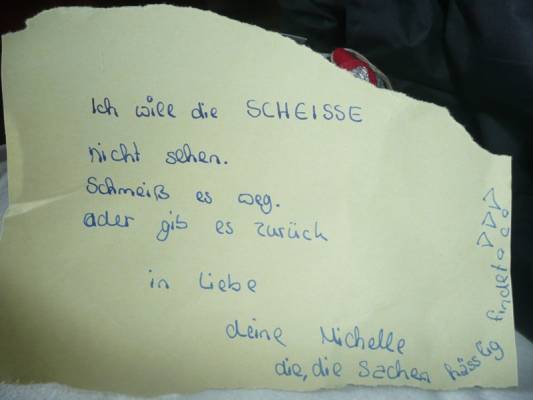 Ich will die SCHEISSE
nicht sehen.
Schmeiß es weg.
oder gib es zurück
in Liebe
deine Michelle
die, die Sachen hässlig findet